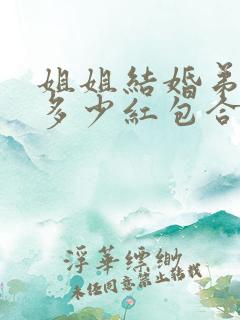 姐姐結婚弟
多少紅包合
浮華縹緲
未經同意禁止轉載